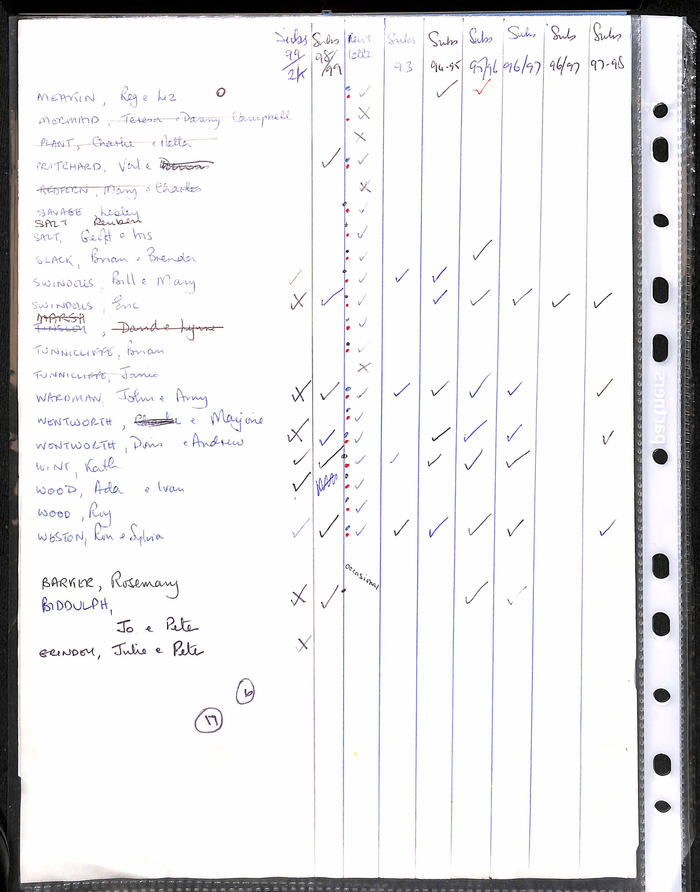 Subs 99/2K Subs 98/99 Next Lottz Subs 93 Subs 94-95 Subs 95/96 Subs 96/97 Subs 96/97 Subs 97-98
MEAKIN, Reg e Liz O ✓ ✓ ✓
MERMAID, Teresa e Danny Campbell X
PLANT, Charlie e Netta X
PRITCHARD, Val e ✓ ✓
REDFERN, Mary e Charles X
SAVAGE Lesley ✓
SALT Reuben
SALT, Geoff e Iris ✓
SLACK, Brian e Brenda ✓ ✓
SWINDELLS, Bill e Mary ✓ ✓ ✓ ✓
SWINDELLS, Eric X ✓ ✓ ✓ ✓ ✓ ✓ ✓
MARSH
TINSLEY, David e Lynne ✓
TUNNICLIFFE, Brian ✓
TUNNICLIFFE, Janie X
WARDMAN, John e Amy X ✓ ✓ ✓ ✓ ✓ ✓ ✓
WENTWORTH, e Marjorie ✓
WENTWORTH, Doris e Andrew X ✓ ✓ ✓ ✓ ✓ ✓
WINT, Kath ✓ ✓ ✓ ✓ ✓ ✓ ✓
WOOD, Ada e Ivan ✓ ✓
WOOD, Roy ✓
WESTON, Ron e Sylvia ✓ ✓ ✓ ✓ ✓ ✓ ✓ ✓
occasional
BARKER, Rosemary
BIDDULPH, X ✓ ✓ ✓
Jo e Pete
GRINDEY, Julie e Pete X
6
17
partners